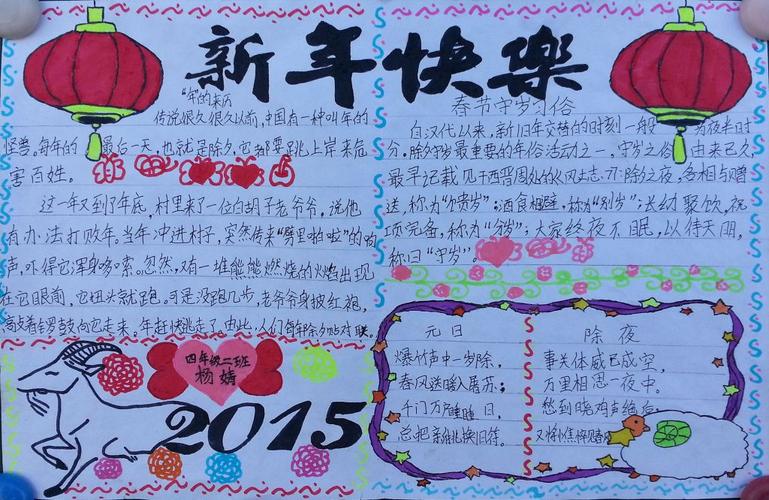 新年快樂
"年"的来历
传说很久很久以前,中国有一种叫年的
怪兽。每年的最后一天,也就是除夕,它都要跳上岸来危
害百姓。
这一年又到了年底,村里来了一位白胡子老爷爷,说他
有办法打败年。当年冲进村子,突然传来"劈里啪啦"的响
声,吓得它浑身哆嗦。忽然,又有一堆熊熊燃烧的火焰出现
在它眼前,它扭头就跑。可是没跑几步,老爷爷身披红袍,
敲着锣鼓向它走来。年赶快逃走了。由此,人们每年除夕贴对联
四年级二班
杨婧
2015
春节守岁习俗
自汉代以来,新旧年交替的时刻一般为夜半时
分。除夕守岁最重要的年俗活动之一,守岁之俗由来已久。
最早记载见于西晋周处的《风土志》:除夕之夜,各相与赠
送,称为"馈岁";酒食相邀,称为"别岁";长幼聚饮,祝
颂完备,称为"分岁";大家终夜不眠,以待天明,
称曰"守岁"。
元日
爆竹声中一岁除,
春风送暖入屠苏;
千门万户曈曈日,
总把新桃换旧符。
除夜
事关休戚已成空,
万里相思一夜中。
愁到晓鸡声绝后,
又将憔悴见春